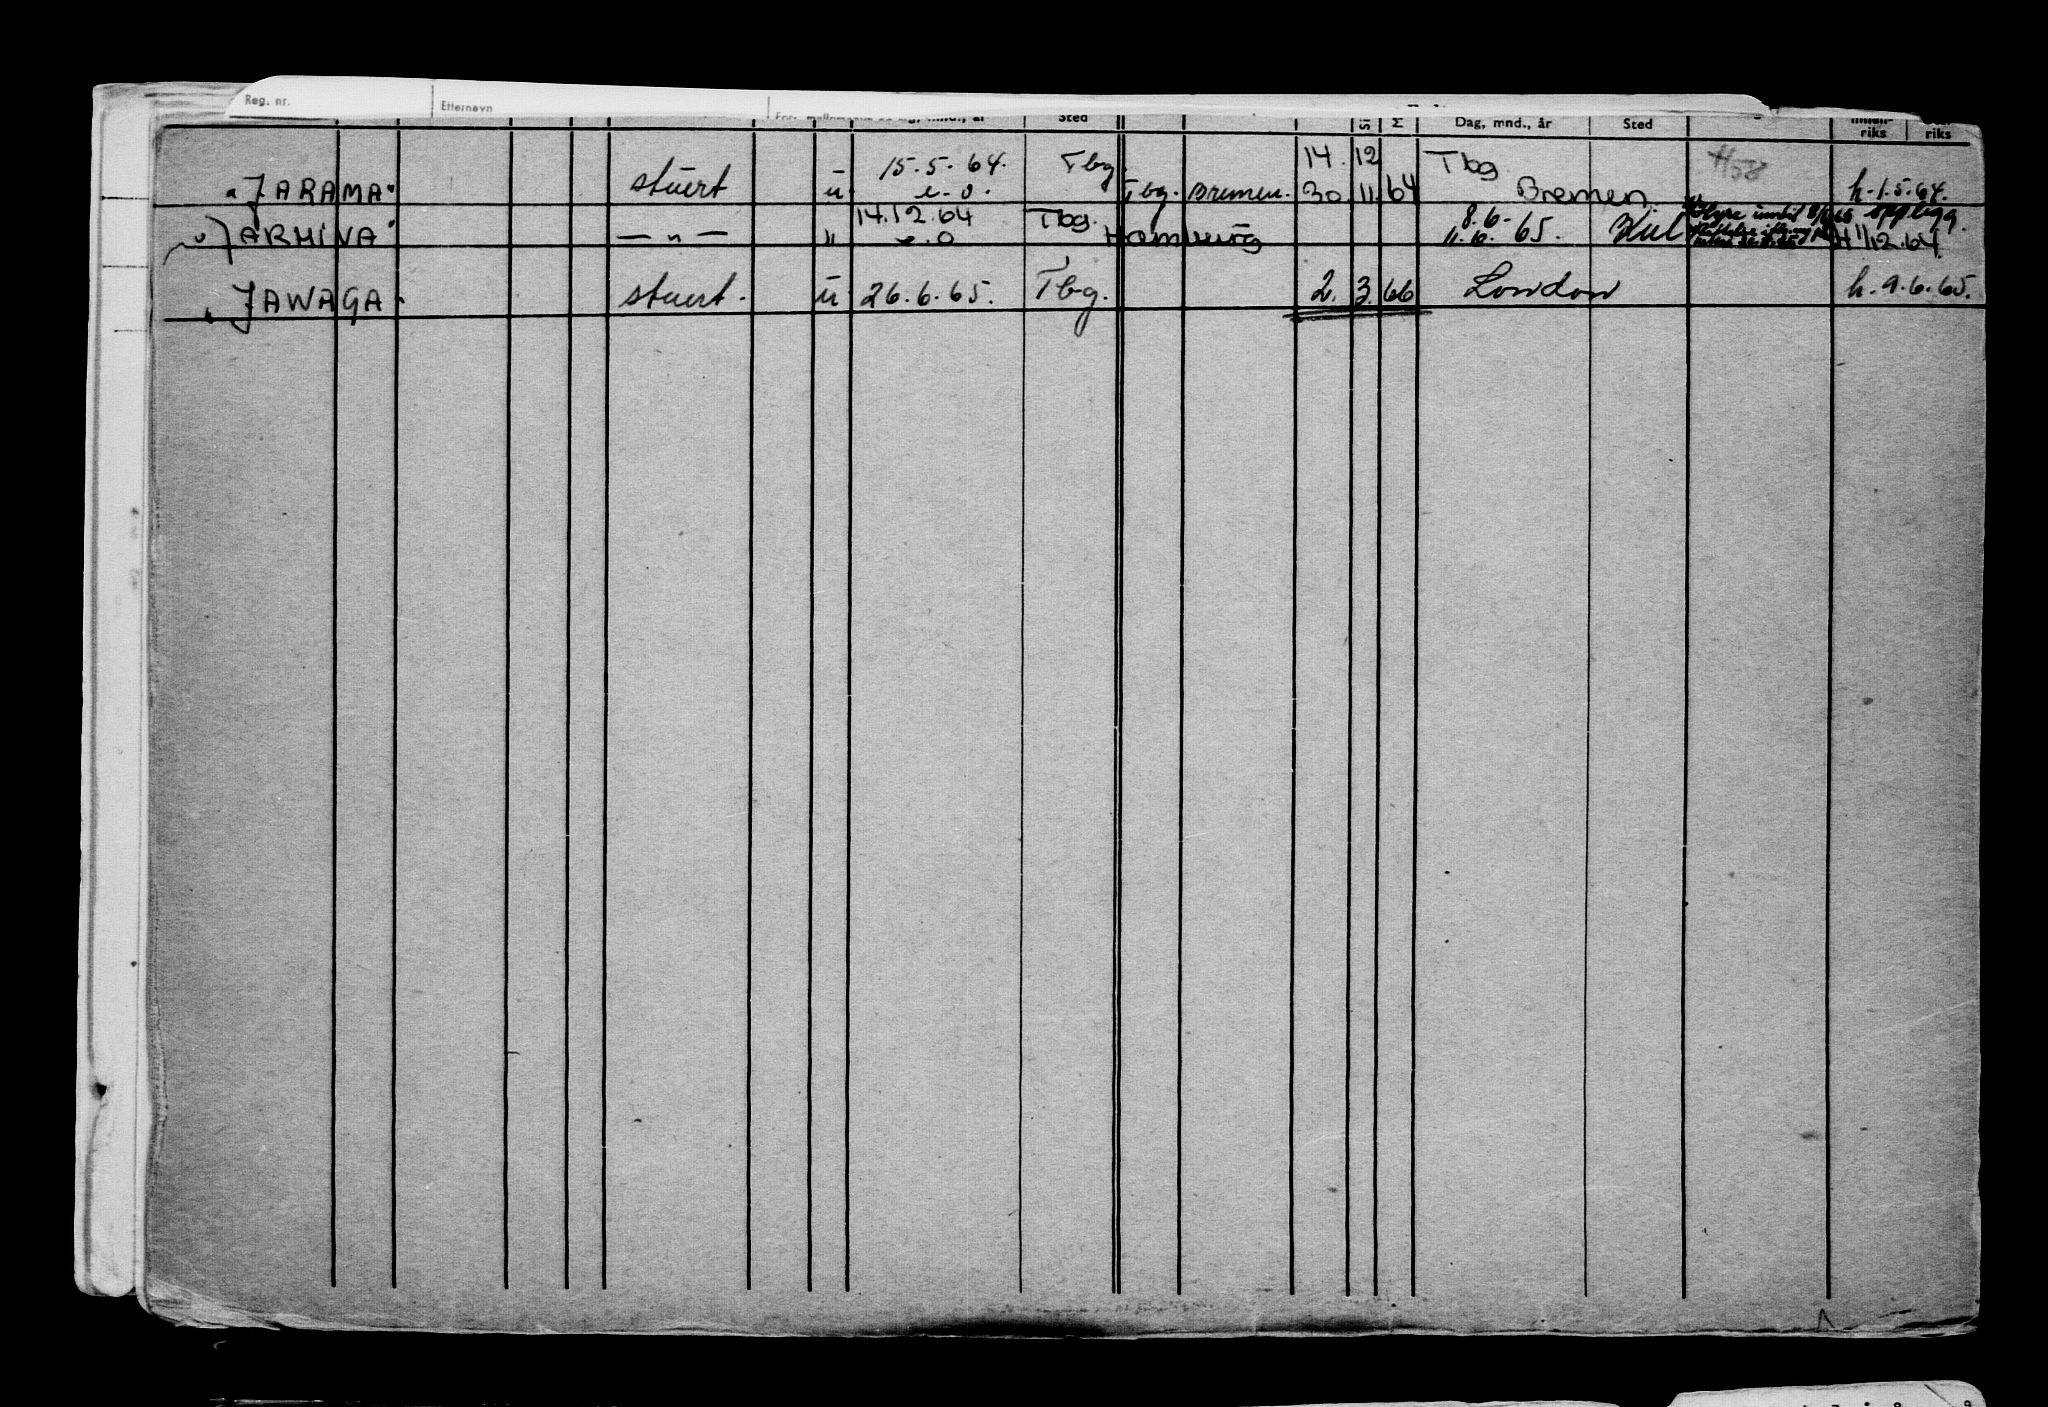 Reg. nr. Etternavn
Dag, mnd., år Sted riks riks
15.5.64. Tbg. 14. 12 Tbg H58
"JARAMA" stuert u. e.o. Tbg. Bremen. 30. 11. 64 Bremen. h-1.5.64.
14.12.64 Tbg. 8.6.- opplegg.
"JARMINA" — " — " e.o Hamburg 11.10.-65. Kiel H 1/12.64
"JAWAGA" stuert. u. 26.6.65. Tbg. 2. 3. 66 London h.9.6.65.